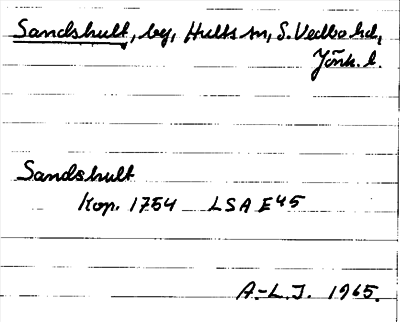 Sandshult, by, Hults sn, S. Vedbo hd,
Jönk. l.
Sandshult
Kop. 1754 LSA E45
A.-L.J. 1965.